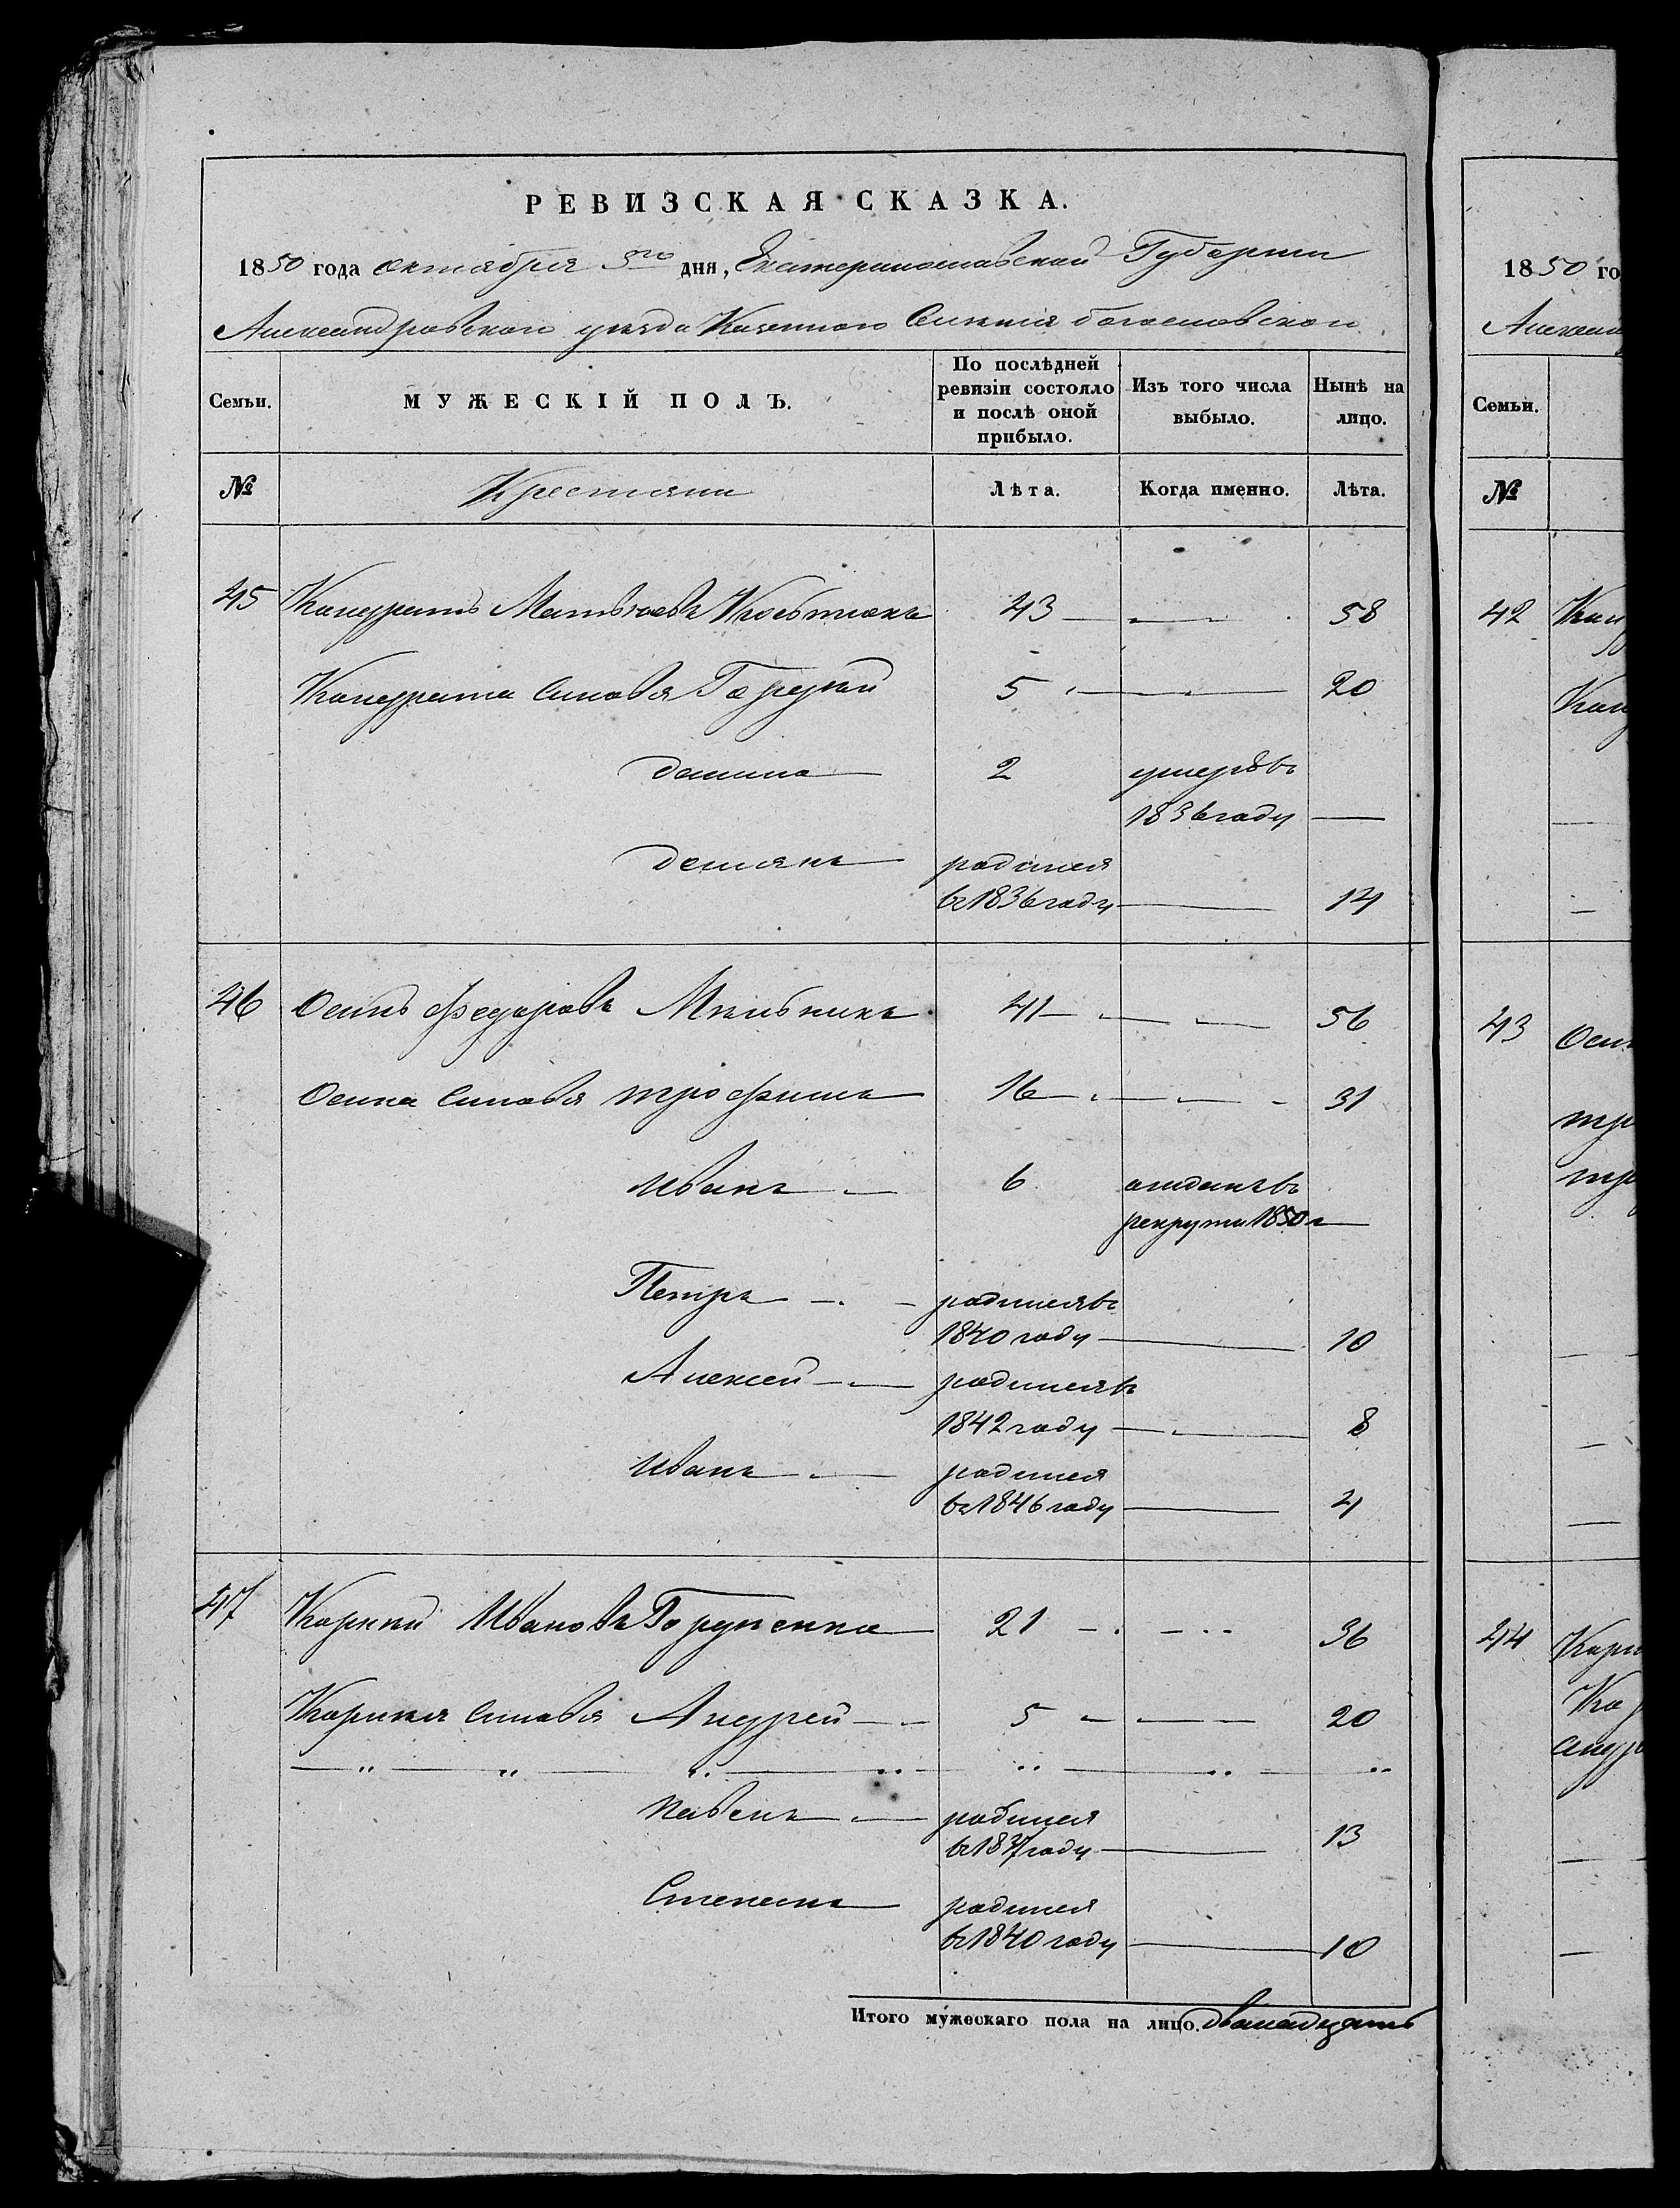 РЕВИЗСКАЯ СКАЗКА.
1850 года октября 5го дня, Екатеринославской Губернии
Александровскаго уезда Казенного Селения богословского
Семьи. МУЖЕСКІЙ ПОЛЪ. По послѣдней ревизіи состояло и послѣ оной прибыло. Изъ того числа выбыло. Нынѣ на лицо.
№ Крестяни Лѣта. Когда именно. Лѣта.
45 Кандратъ Матвеевъ 43 — 58
Кандрата синовя Гордей 5 — 20
Данило 2 умеръ въ
1836 году —
Демянъ родился
въ 1836 году — 14
46 Осипъ Федоровъ Мельникъ 41 — 56
Осипа синовя трофимъ 16 — 31
Иванъ — 6 отданъ въ
рекрути 1850 г —
Петръ — родился въ
1840 году — 10
Алексей — родился въ
1842 году — 8
Иванъ — родился
въ 1846 году — 4
47 Карпъ Ивановъ 21 — 36
Карпа синовя Андрей — 5 — 20
Павелъ — родился
въ 1837 году — 13
Степанъ родился
въ 1840 году — 10
Итого мужескаго пола на лицо. дванадцять
1850 го
Семьи.
№
42
43
44